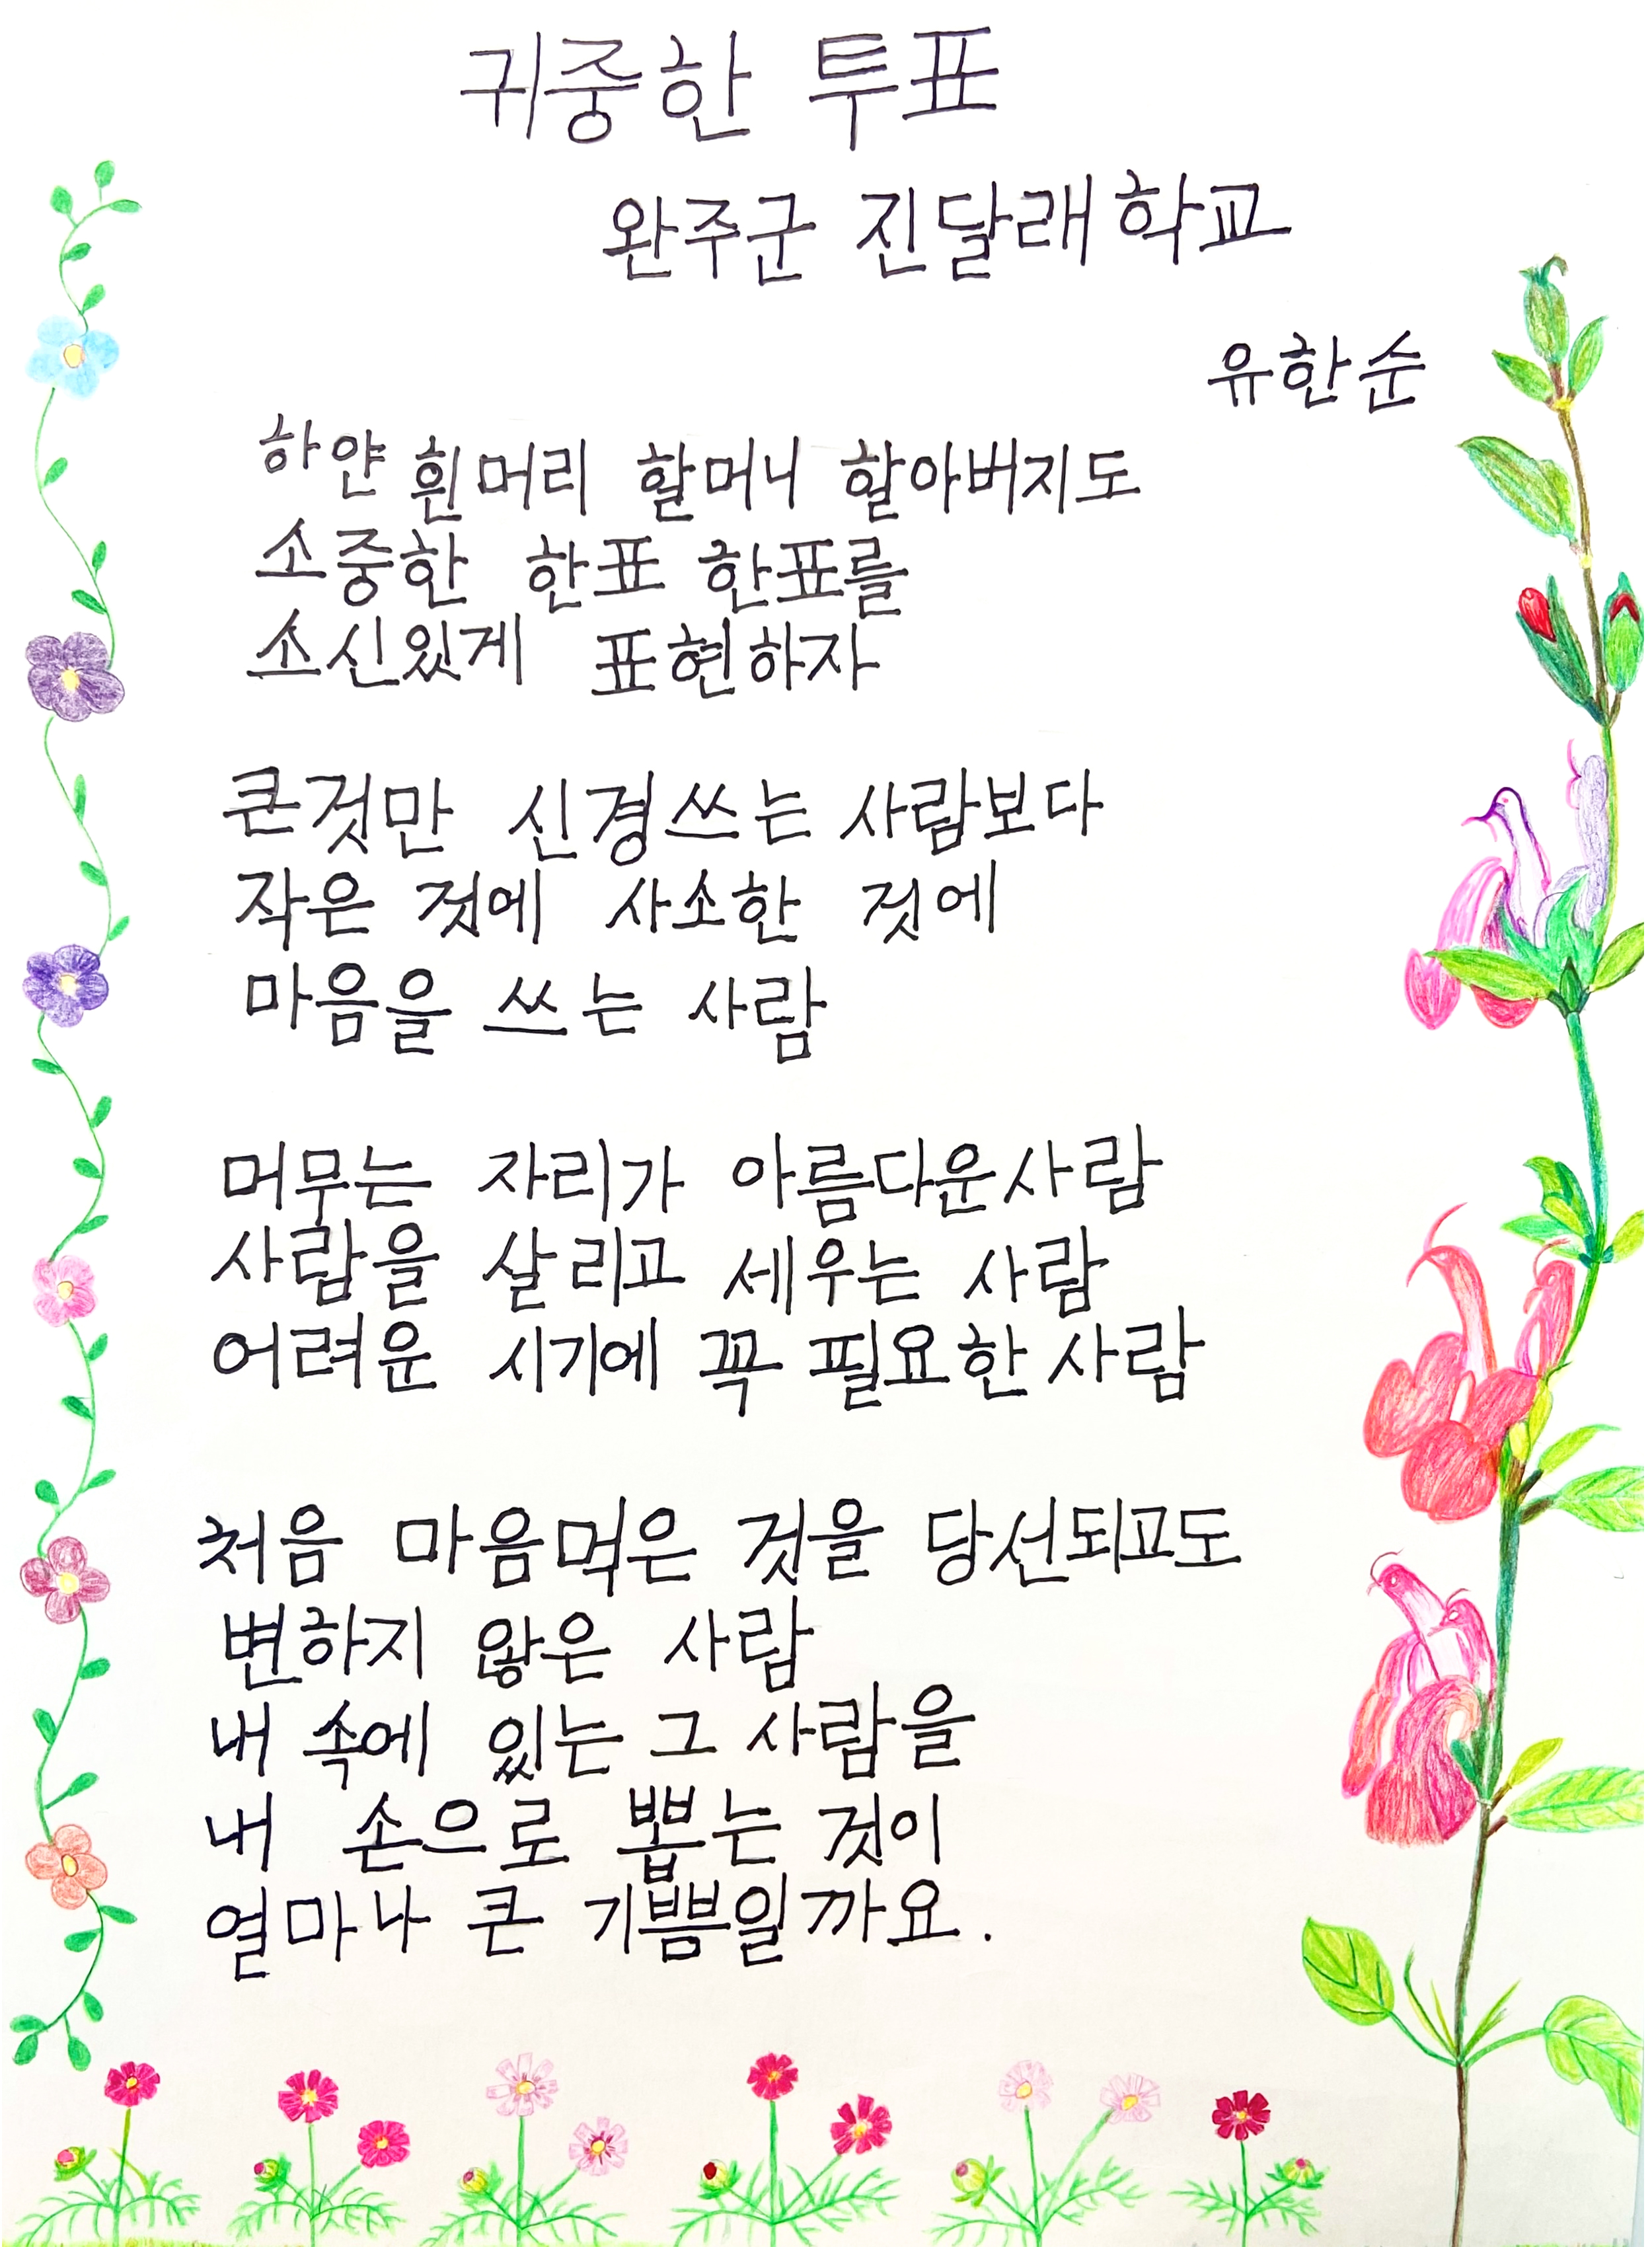 귀중한 투표
완주군 진달래학교
유한순
하얀 흰머리 할머니 할아버지도
소중한 한표 한표를
소신있게 표현하자
큰것만 신경쓰는 사람보다
작은 것에 사소한 것에
마음을 쓰는 사람
머무는 자리가 아름다운사람
사람을 살리고 세우는 사람
어려운 시기에 꼭 필요한사람
처음 마음먹은 것을 당선되고도
변하지 않은 사람
내 속에 있는 그 사람을
내 손으로 뽑는 것이
열마나 큰 기쁨일까요.